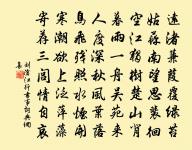 遠渚蒹葭覆綠苔
姑蘇南望思裴徊
空江獨樹楚山背
暮雨一舟吳苑來
人度深秋風葉落
鳥飛殘照水煙開
寒潮欲上泛萍藻
寄薦三閭情自哀
劉滄江行書事詩詞典網
集